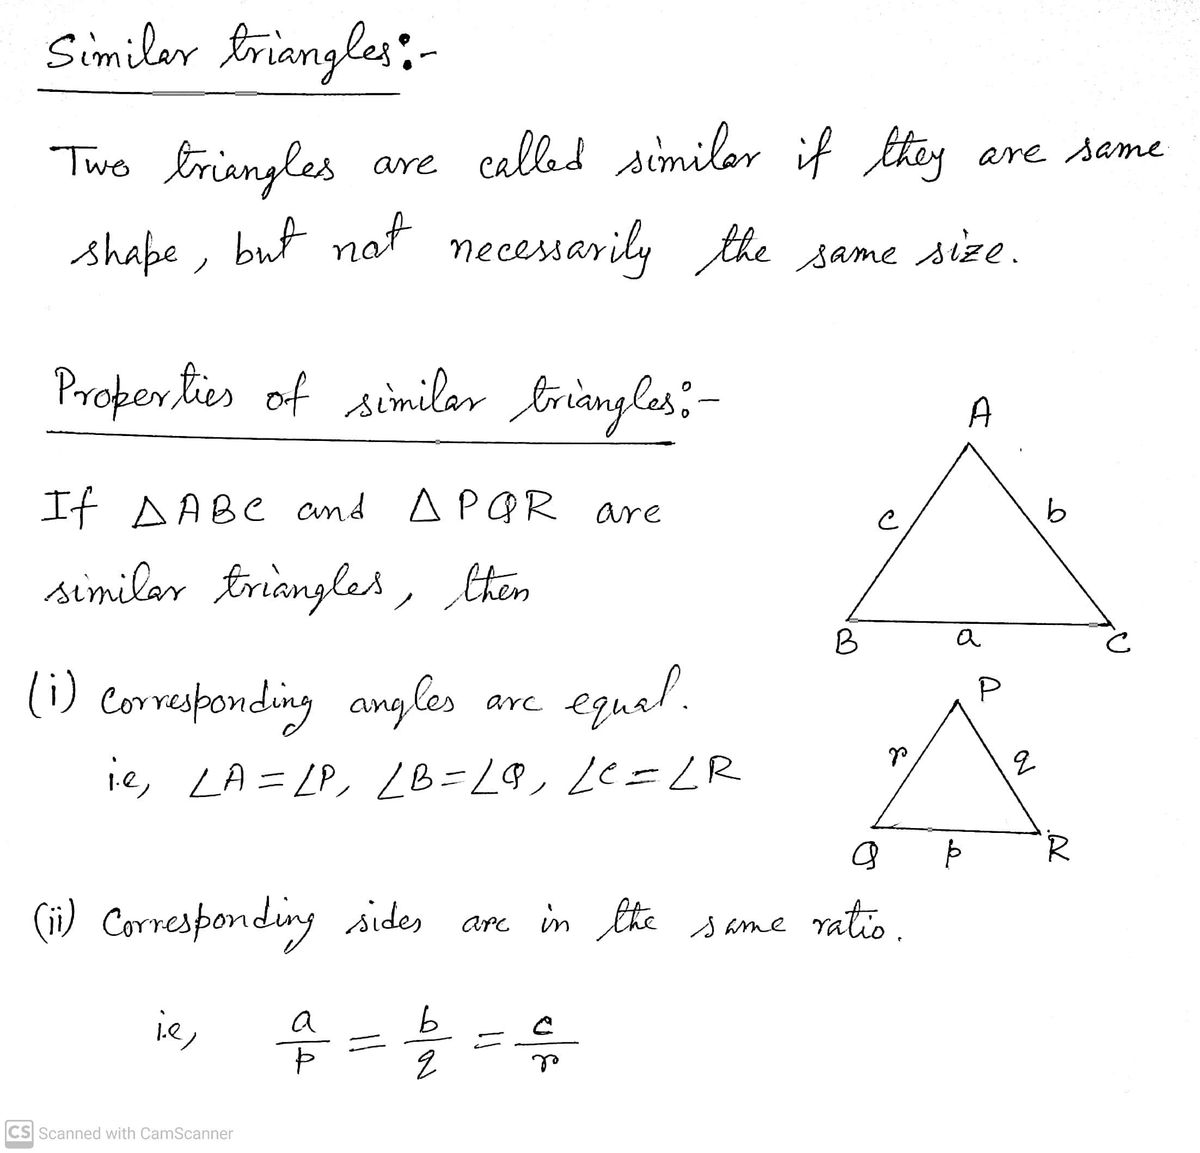 Similar triangles:-
Two triangles are called similar if they are same
shape, but not necessarily the same size.
Properties of similar triangles:-
If △ABC and △PQR are
similar triangles, then
(i) Corresponding angles are equal.
i.e, ∠A = ∠P, ∠B = ∠Q, ∠C = ∠R
A
c
b
B
a
C
P
r
q
Q
p
R
(ii) Corresponding sides are in the same ratio.
i.e, a/p = b/q = c/r
CS Scanned with CamScanner